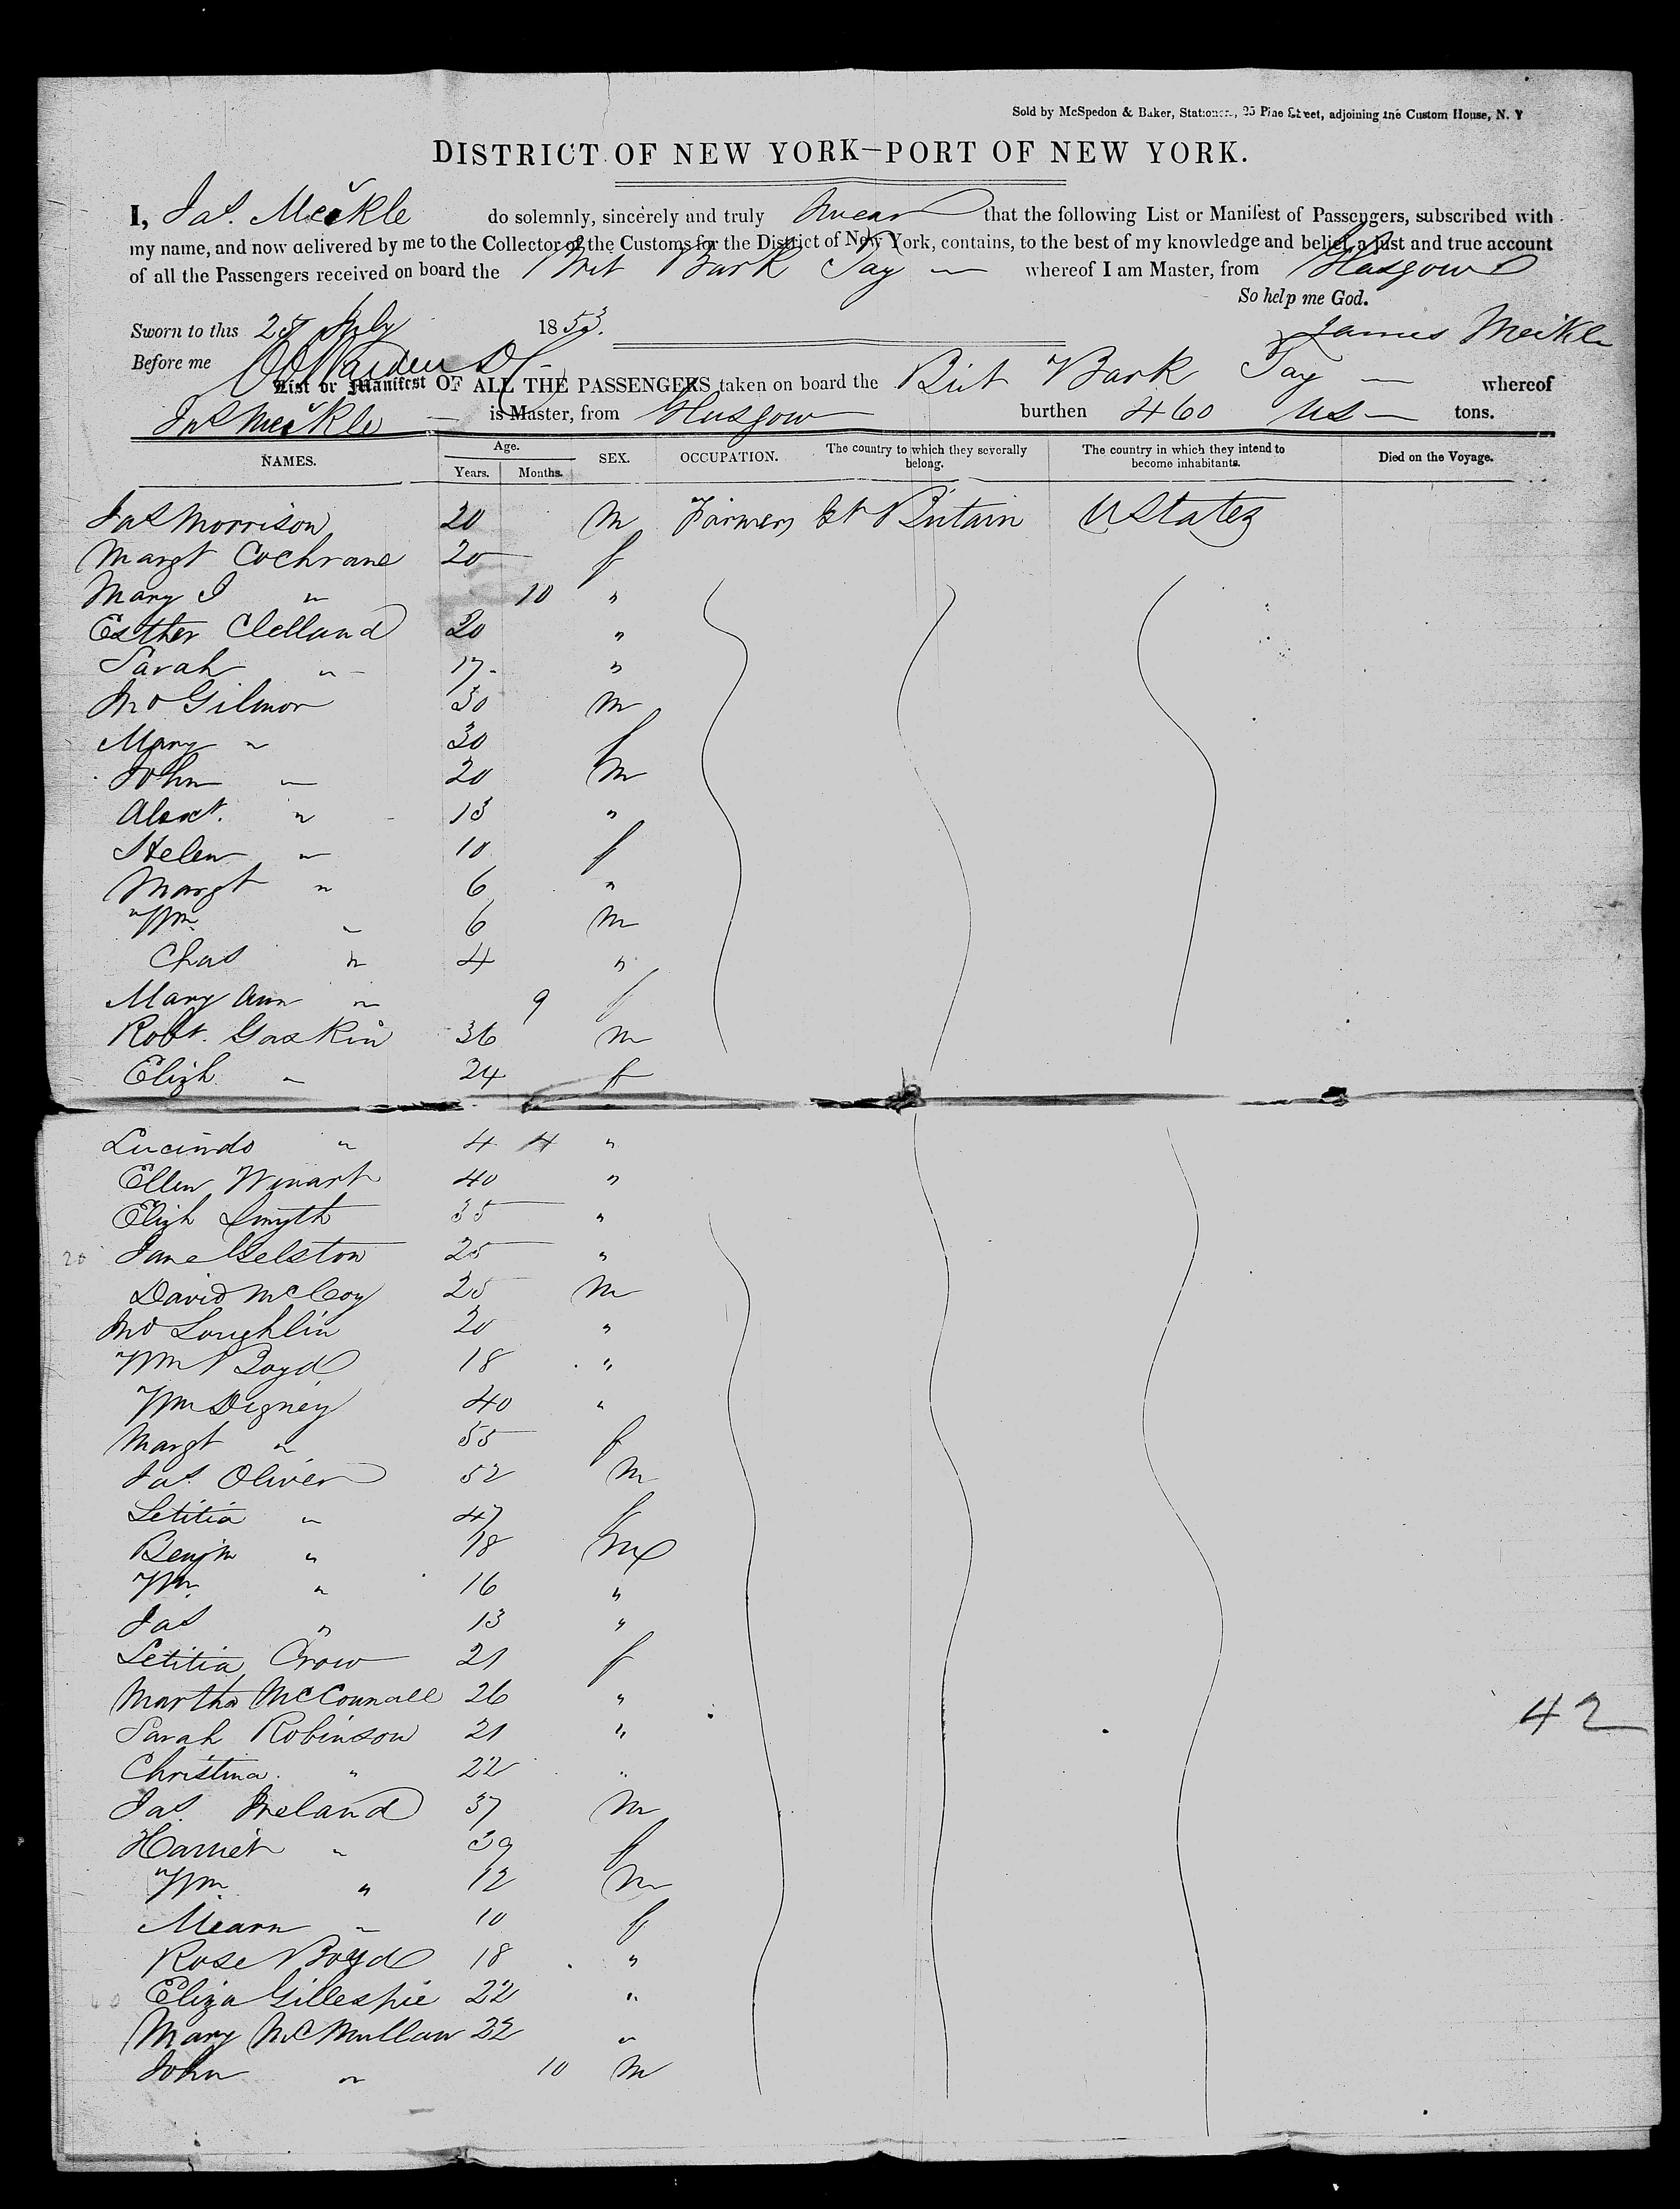 Sold by McSpedon & Baker, Stationers, 25 Pine Street, adjoining the Custom House, N. Y
DISTRICT OF NEW YORK—PORT OF NEW YORK.
I, Jas. Meikle do solemnly, sincerely and truly swear that the following List or Manifest of Passengers, subscribed with
my name, and now delivered by me to the Collector of the Customs for the District of New York, contains, to the best of my knowledge and belief, a just and true account
of all the Passengers received on board the Brit Bark Tay whereof I am Master, from Glasgow
So help me God.
Sworn to this 25 July 1853.
James Meikle
Before me
List or Manifest OF ALL THE PASSENGERS taken on board the Brit Bark Tay whereof
Jas Meikle is Master, from Glasgow burthen 460 tons.
NAMES. Age. Years. Months. SEX. OCCUPATION. The country to which they severally belong. The country in which they intend to become inhabitants. Died on the Voyage.
Jas Morrison 20 M Farmer Gt Britain U States
Margt Cochrane 20 f
Mary J " 10 "
Esther Clelland 20 "
Sarah " 17 "
Jno Gilmor 30 M
Mary " 30 f
John " 20 M
Alexr. " 13 "
Helen " 10 f
Margt " 6 "
Wm. " 6 M
Chas " 4 "
Mary Ann " 9 f
Robt. Gaskin 36 M
Elizh " 24 f
Lucinda " 4 4 "
Ellen 40 "
Elizh Smyth 35 "
20 Jane Gelston 25 "
David McCoy 25 M
Jno Loughlin 20 "
Wm Boyd 18 "
Wm Digney 40 "
Margt " 55 f
Jas. Oliver 52 M
Letitia " 47 f
Benjm " 18 M
Wm. " 16 "
Jas " 13 "
Letitia Crow 21 f
Martha McConnall 26 "
42
Sarah Robinson 21 "
Christina " 22 "
Jas. Ireland 37 M
Harriet " 39 f
Wm. " 12 M
" 10 f
Rose Boyd 18 "
40 Eliza Gillespie 22 "
Mary McMullan 22 "
John " 10 M